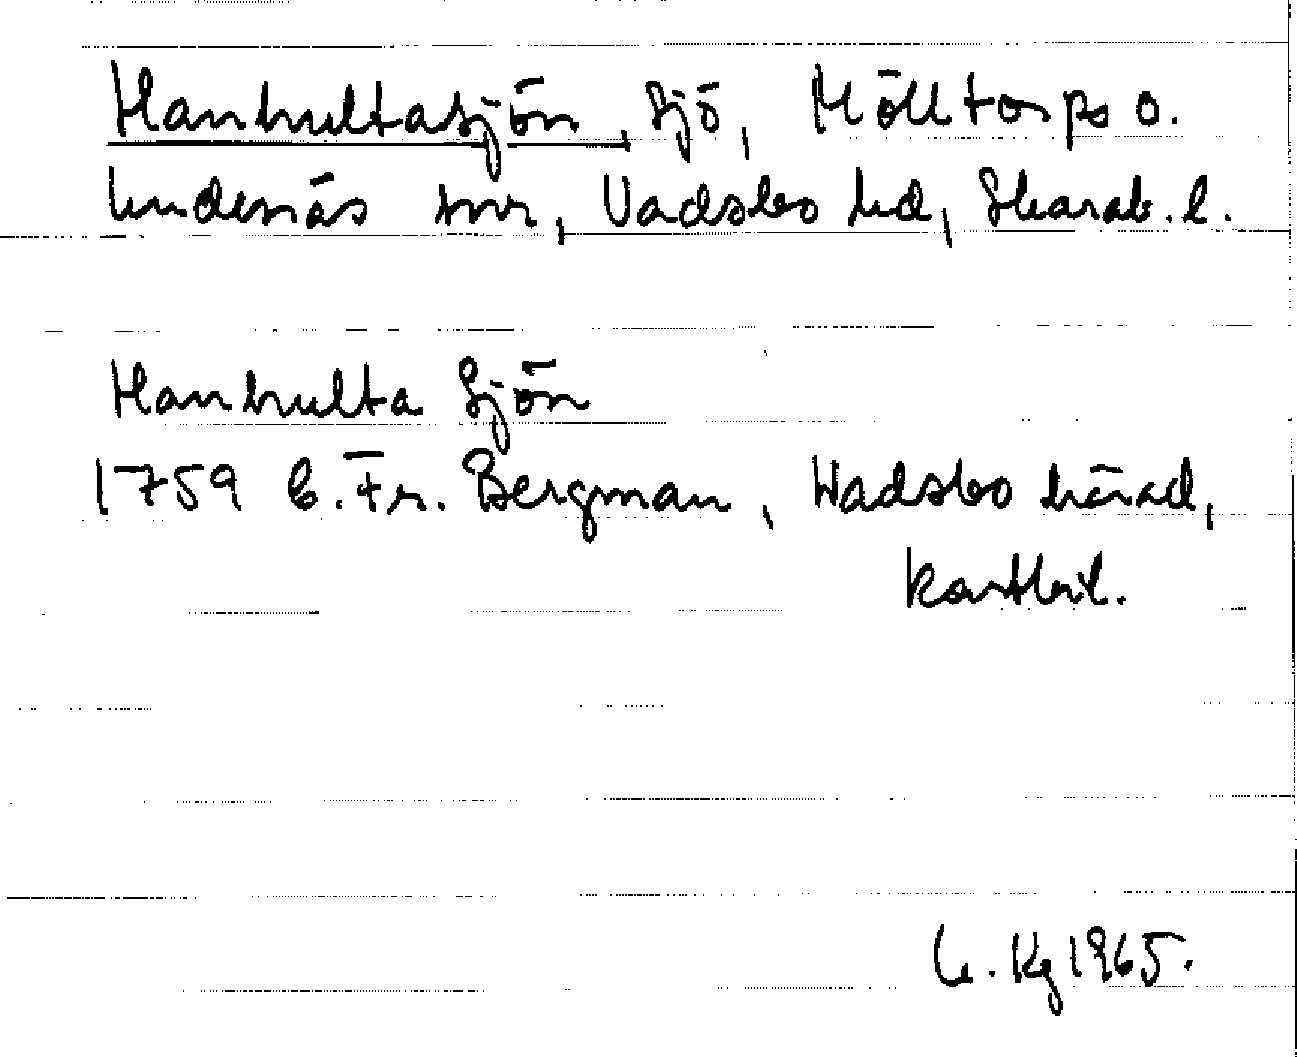 Hanhultasjön, sjö, Mölltorps o.
Undenäs snr, Vadsbo hd, Skarab. l.
Hanhulta Sjön
1759 C. Fr. Bergman, Wadsbo härad,
kartbil.
Kg 1965.